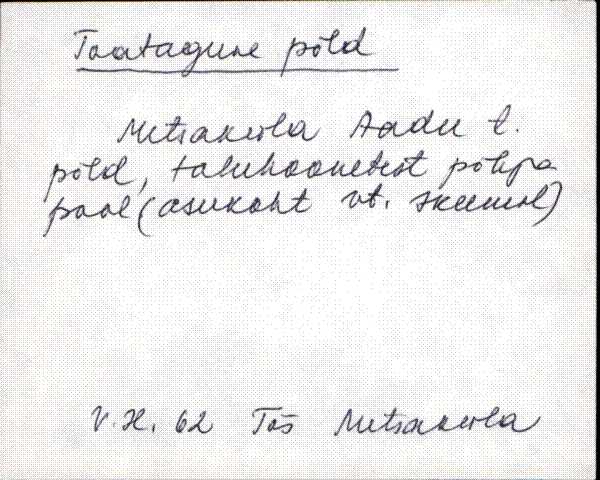 Taatagune põld
Metsakõrla Aadu t.
põld, taluhoonetest põhja
pool (asukoht vt. skeemil)
V. H. 62 Tõs Metsakõrla